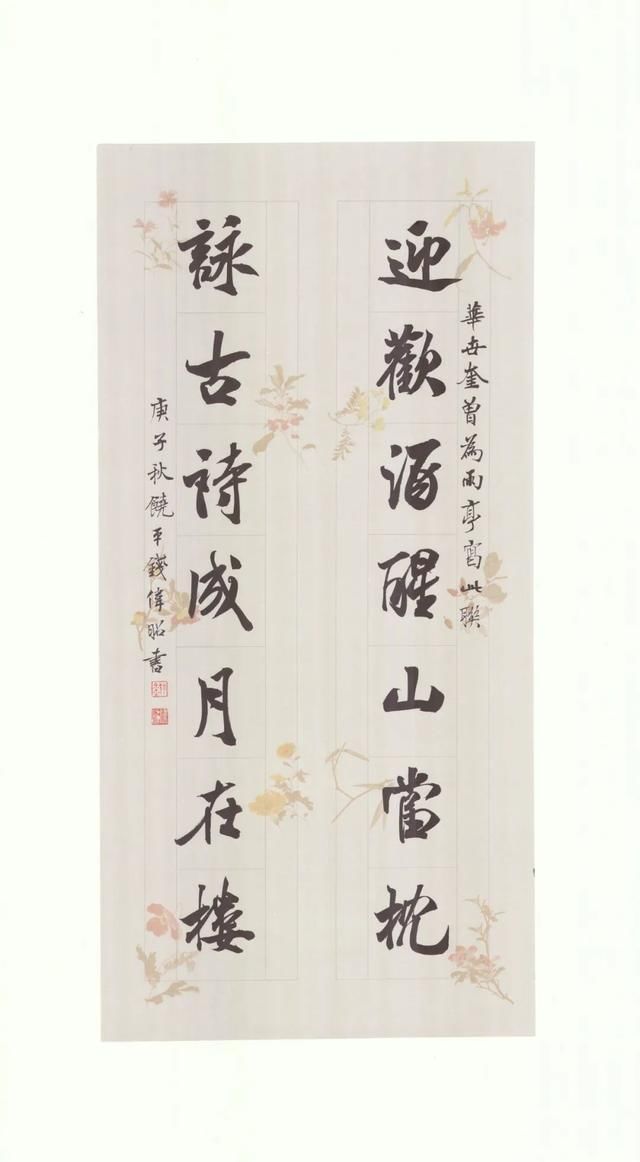 華世奎曾為雨亭寫此聯
迎歡酒醒山當枕
詠古詩成月在樓
庚子秋饒平錢偉昭書